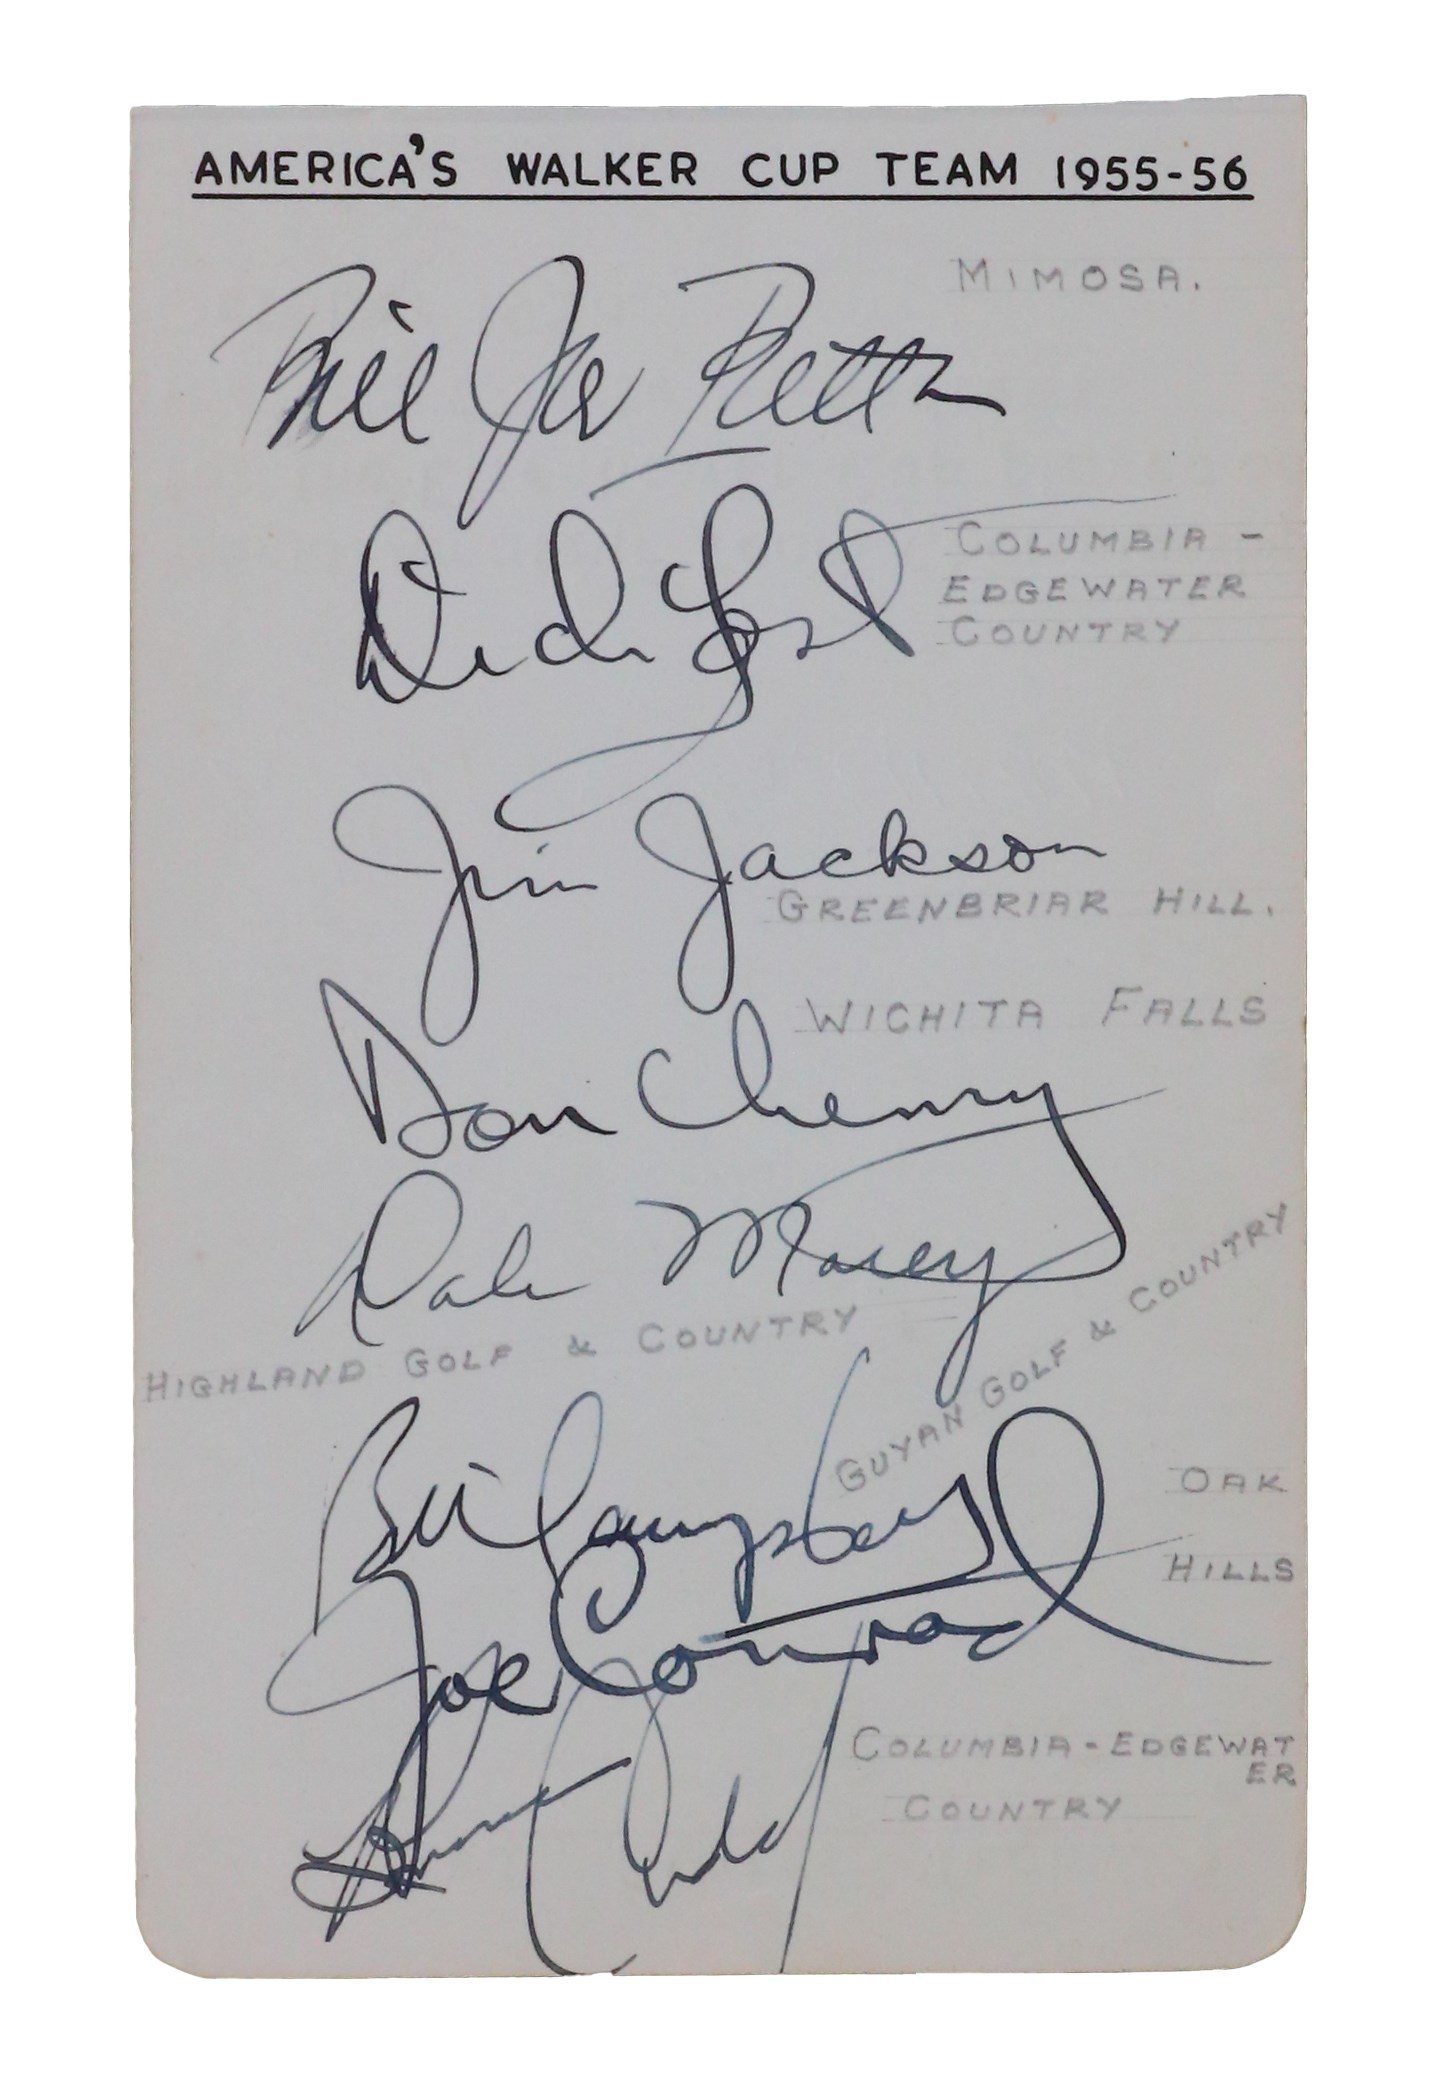 AMERICA'S WALKER CUP TEAM 1955-56
MIMOSA.
Billy Joe Patton
Dick Yost
COLUMBIA -
EDGEWATER
COUNTRY
Jim Jackson
GREENBRIAR HILL.
WICHITA FALLS
Don Cherry
Dale Morey
HIGHLAND GOLF & COUNTRY
GUYAN GOLF & COUNTRY
Bill Campbell
OAK
HILLS
Joe Conrad
COLUMBIA - EDGEWAT
ER
COUNTRY
Bruce Cudd